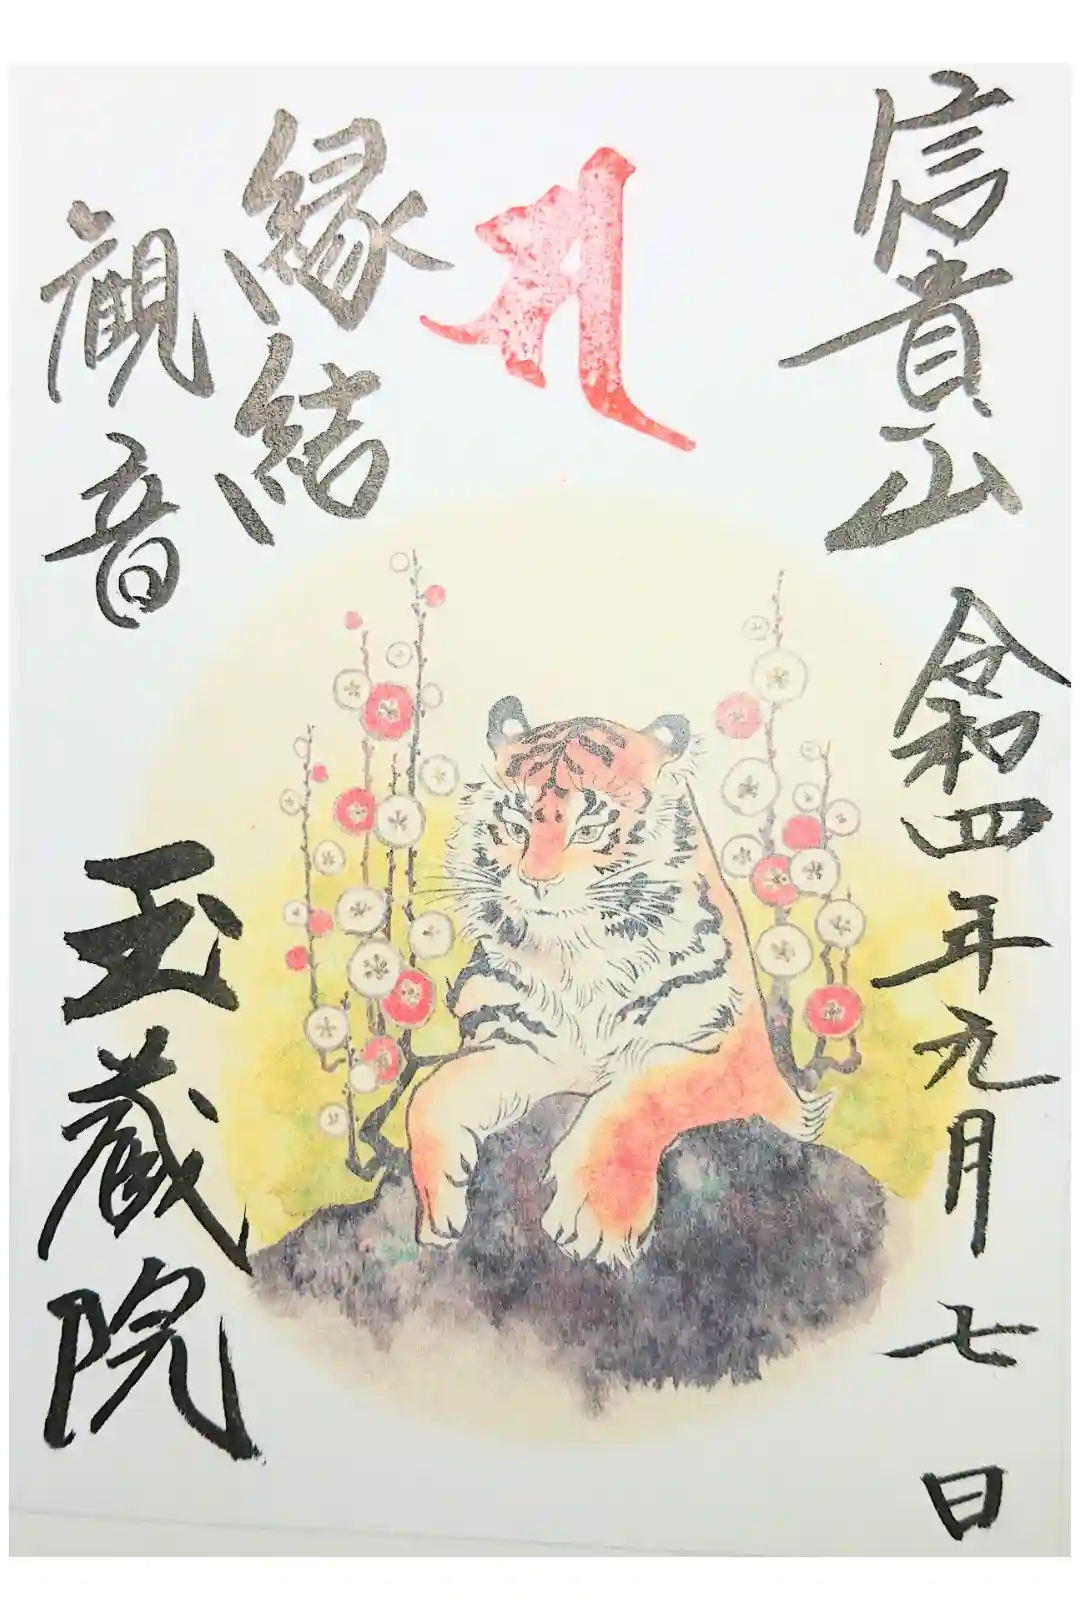 信貴山
令和四年元月七日
サ
縁結
観音
玉蔵院